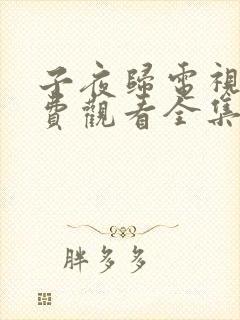 子夜歸電視
費觀看全集
胖多多